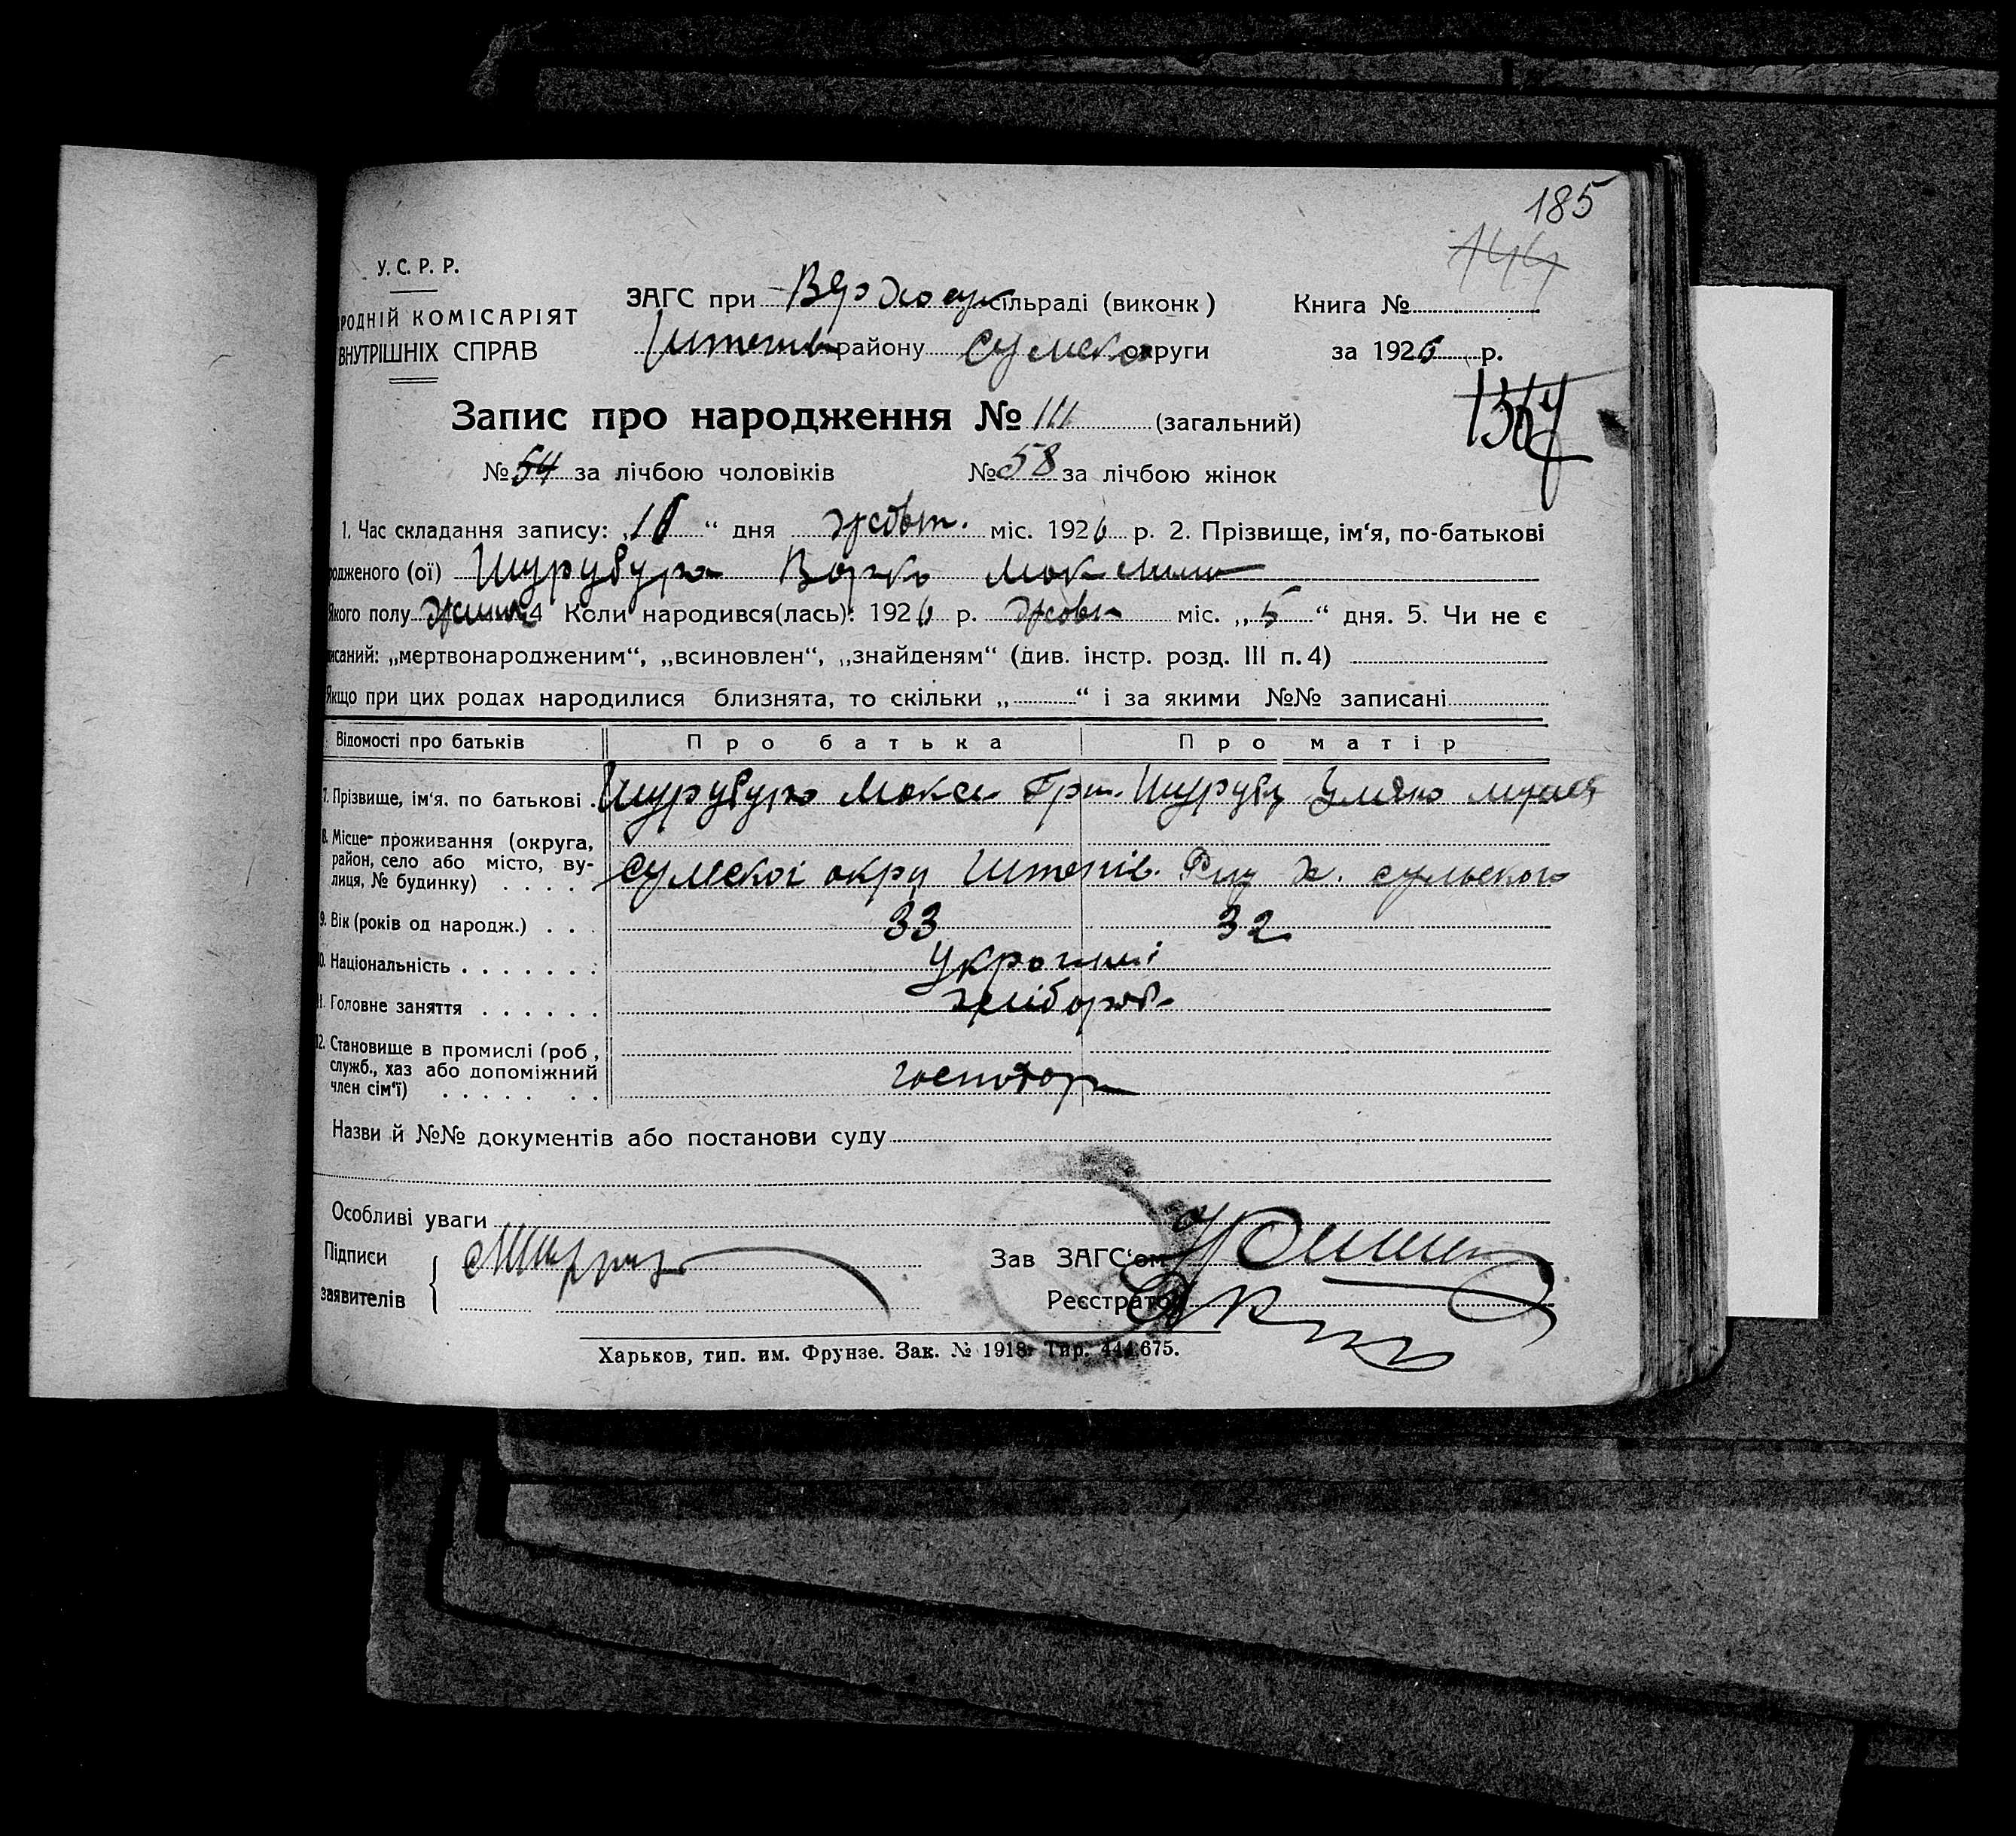 185
У. С. Р. Р.
РОДНІЙ КОМІСАРІЯТ
ВНУТРІШНІХ СПРАВ
ЗАГС при сільраді (виконк)
Книга №
району Сумсько округи
за 1926 р.
Запис про народження № 111 (загальний)
№ 54 за лічбою чоловіків № 58 за лічбою жінок
1. Час складання запису: „ “ дня жовт. міс. 1926 р. 2. Прізвище, ім‘я, по-батькові
родженого (ої) Шурубура Варка
якого полу 4 Коли народився(лась): 1926 р. жовт міс. „ 5 “ дня. 5. Чи не є
писаний: „мертвонародженим“, „всиновлен“, „знайденям“ (див. інстр. розд. III п. 4)
Якщо при цих родах народилися близнята, то скільки „ “ і за якими №№ записані
Відомості про батьків Про батька Про матір
7. Прізвище, ім‘я. по батькові Шурубура Макси Гри. Шурубу Уляна
8. Місце- проживання (округа,
район, село або місто, ву-
лиця, № будинку) Сумської окру Штепів. х. сульського
9. Вік (років од народж.) 33 32
10. Національність Україниі
11. Головне заняття хлібороб
12. Становище в промислі (роб,
служб., хаз або допоміжний
член сім‘ї) господар
Назви й №№ документів або постанови суду
Особливі уваги
Підписи
заявителів
Зав ЗАГС‘ом
Реєстратор
Харьков, тип. им. Фрунзе. Зак. № 1918. Тир. 444.675.